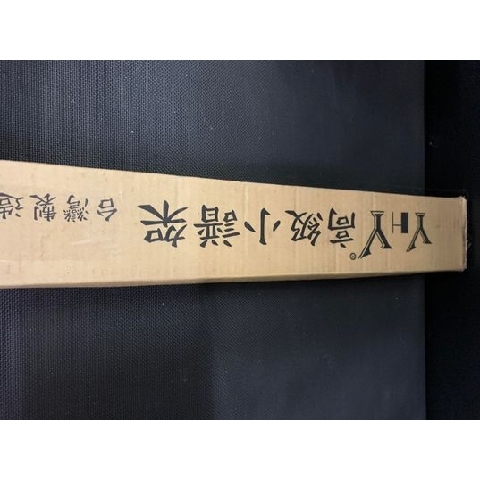 YHY® 高級小譜架 台灣製造